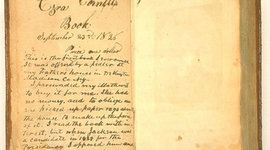 Ezra Cornell's
Book
September 23rd 1826
Price one dollar
This is the first book I ever owned
It was offered by a pedler at
my fathers house in DeRuyter
Madison Co. N.Y.
I persuaded my Mother
to buy it for me She had
no money, and to oblige me
she picked up paper rags about
the house to make up the pay
it. I read the book with in-
terest, but when Jackson was
a candidate in 1828 for the
Presidency I opposed him and